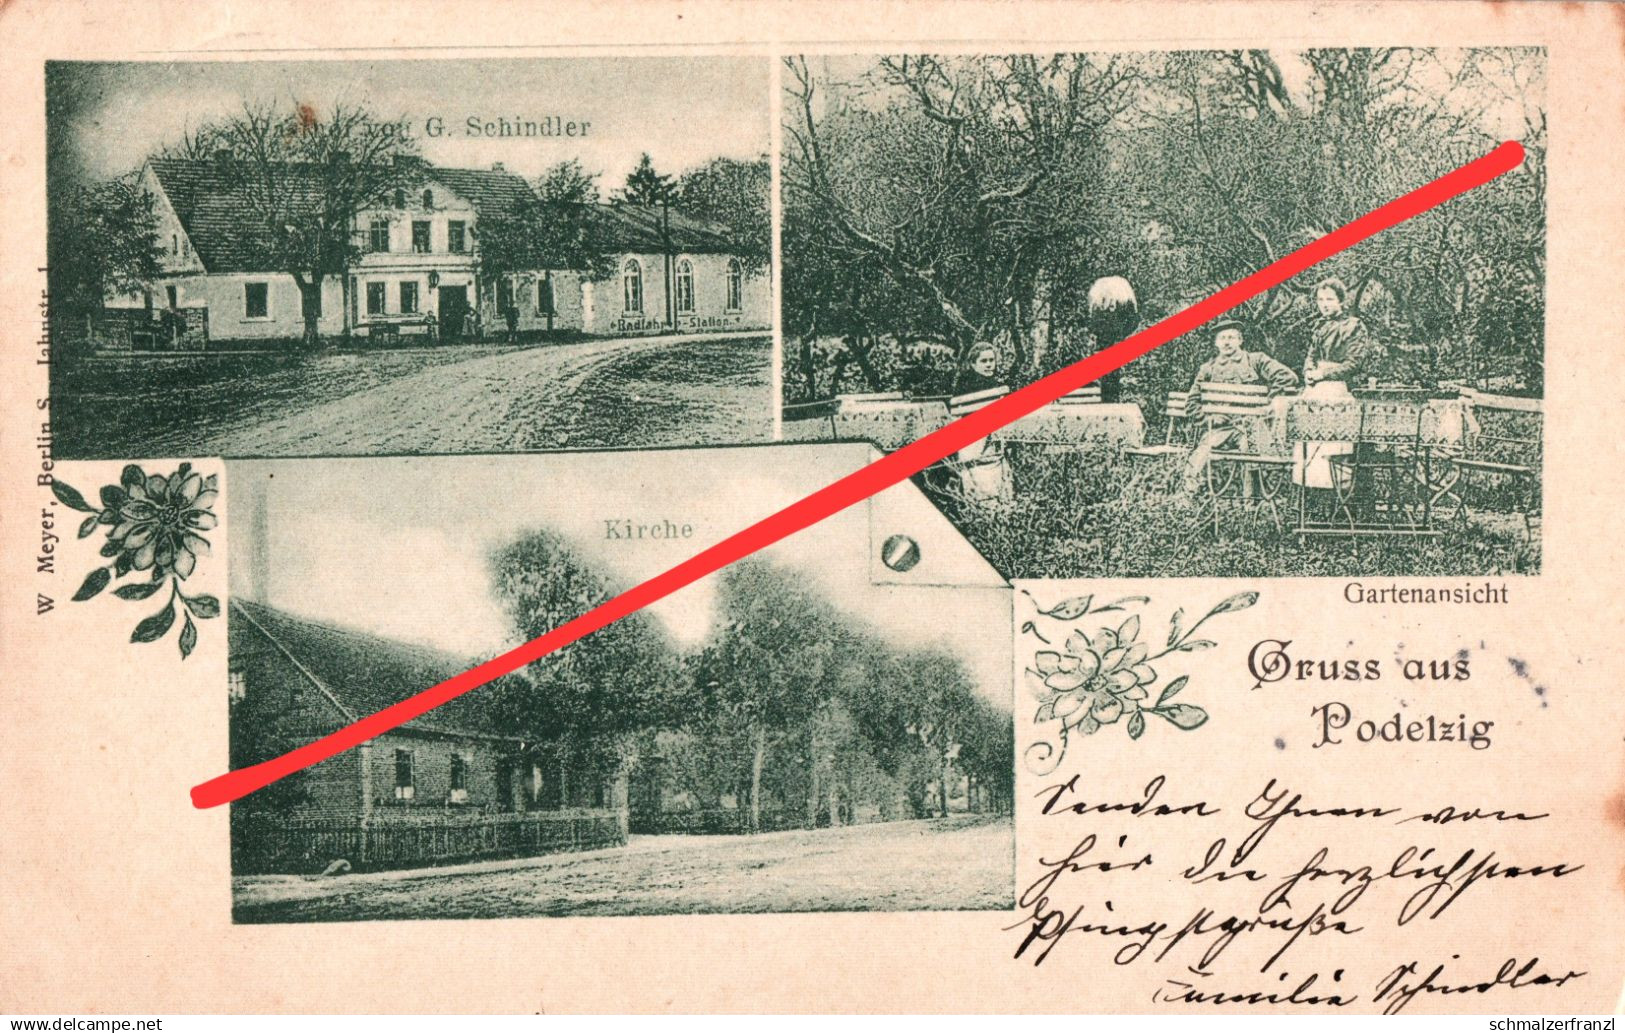 Gasthof von G. Schindler
Radfahrer-Station.
W Meyer, Berlin S. Jahnstr. 1
Kirche
Gartenansicht
Gruss aus
Podelzig
Senden Ihnen von
hier die herzlichsten
Pfingstgrüße
Familie Schindler
© delcampe.net
schmalzerfranzl